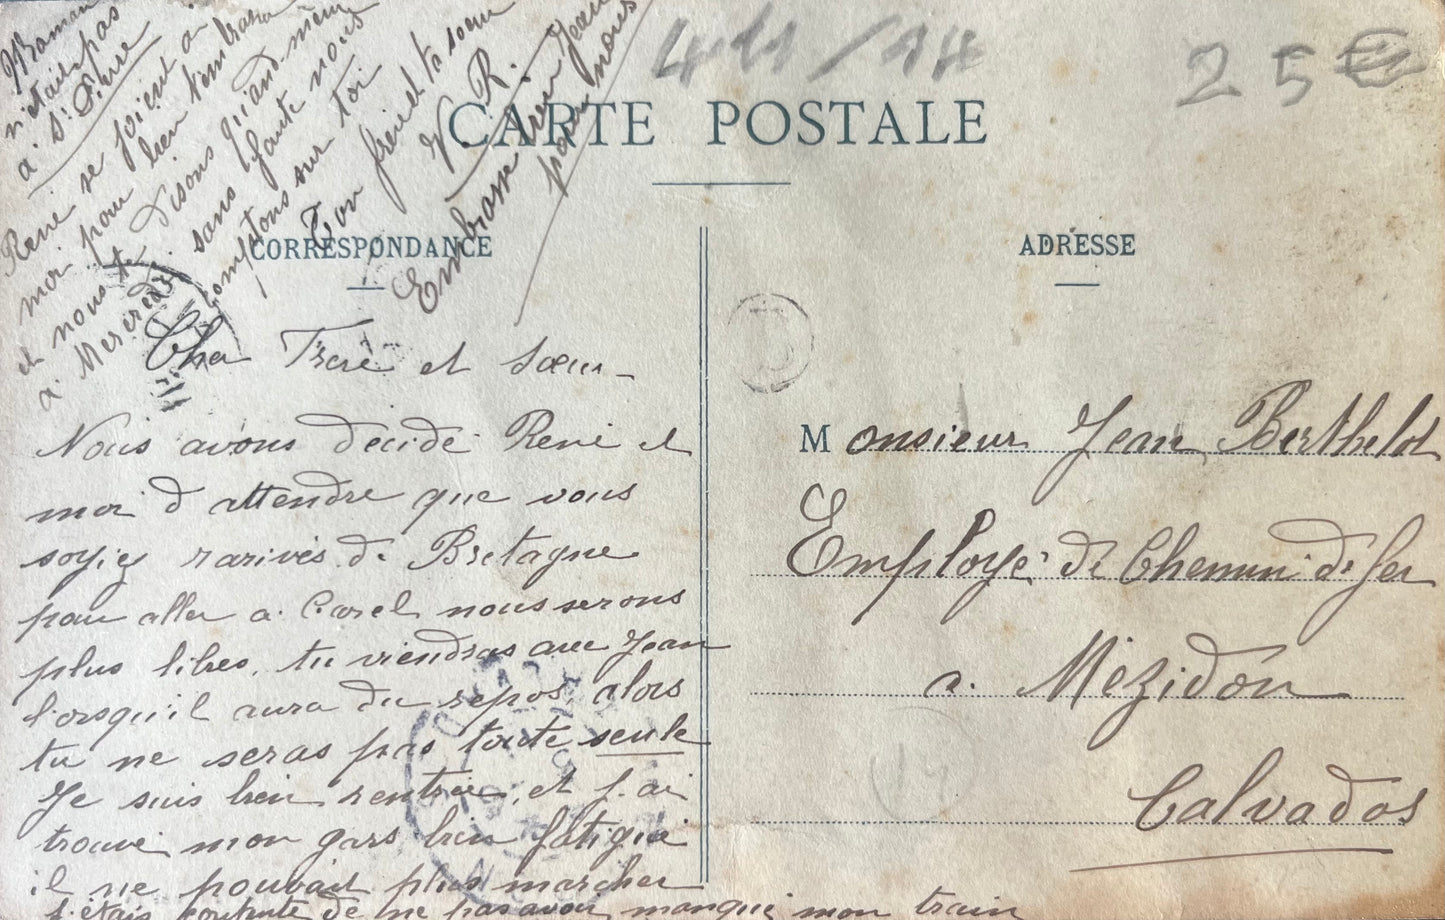 411/14
25€
CARTE POSTALE
CORRESPONDANCE
ADRESSE
Cher Frere et Sœur
Nous avons décidé René et
moi d attendre que vous
soyiez rarivés de Bretagne
pour aller a Carel nous serons
plus libres, tu viendras avec Jean
lorsqu'il aura du repos, alors
tu ne seras pas toute seule
Je suis bien rentrée, et j'ai
trouvé mon gars bien fatigué
il ne pouvait plus marcher
j'étais contente de ne pas avoir manqué mon train
Maman
n'était pas
a St Pierre
René se joient a
moi pour bien t'embrasser
et nous te disons quand même
a Mercredi sans faute nous
comptons sur toi
Ton frère et ta sœur
V. R.
Embrasse bien Jean
pour nous
Monsieur Jean Berthelot
Employé de Chemin de fer
a Mézidon
Calvados
14